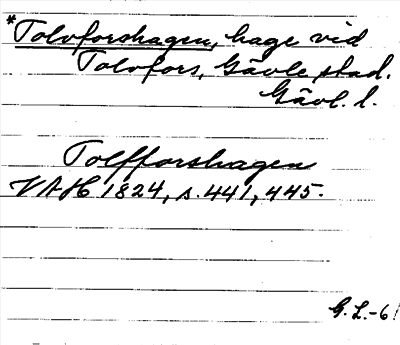 *Tolvforshagen, hage vid
Tolvfors, Gävle stad.
Gävl. l.
Tolfforshagen
VAH 1824, s. 441, 445.
G. L. -61